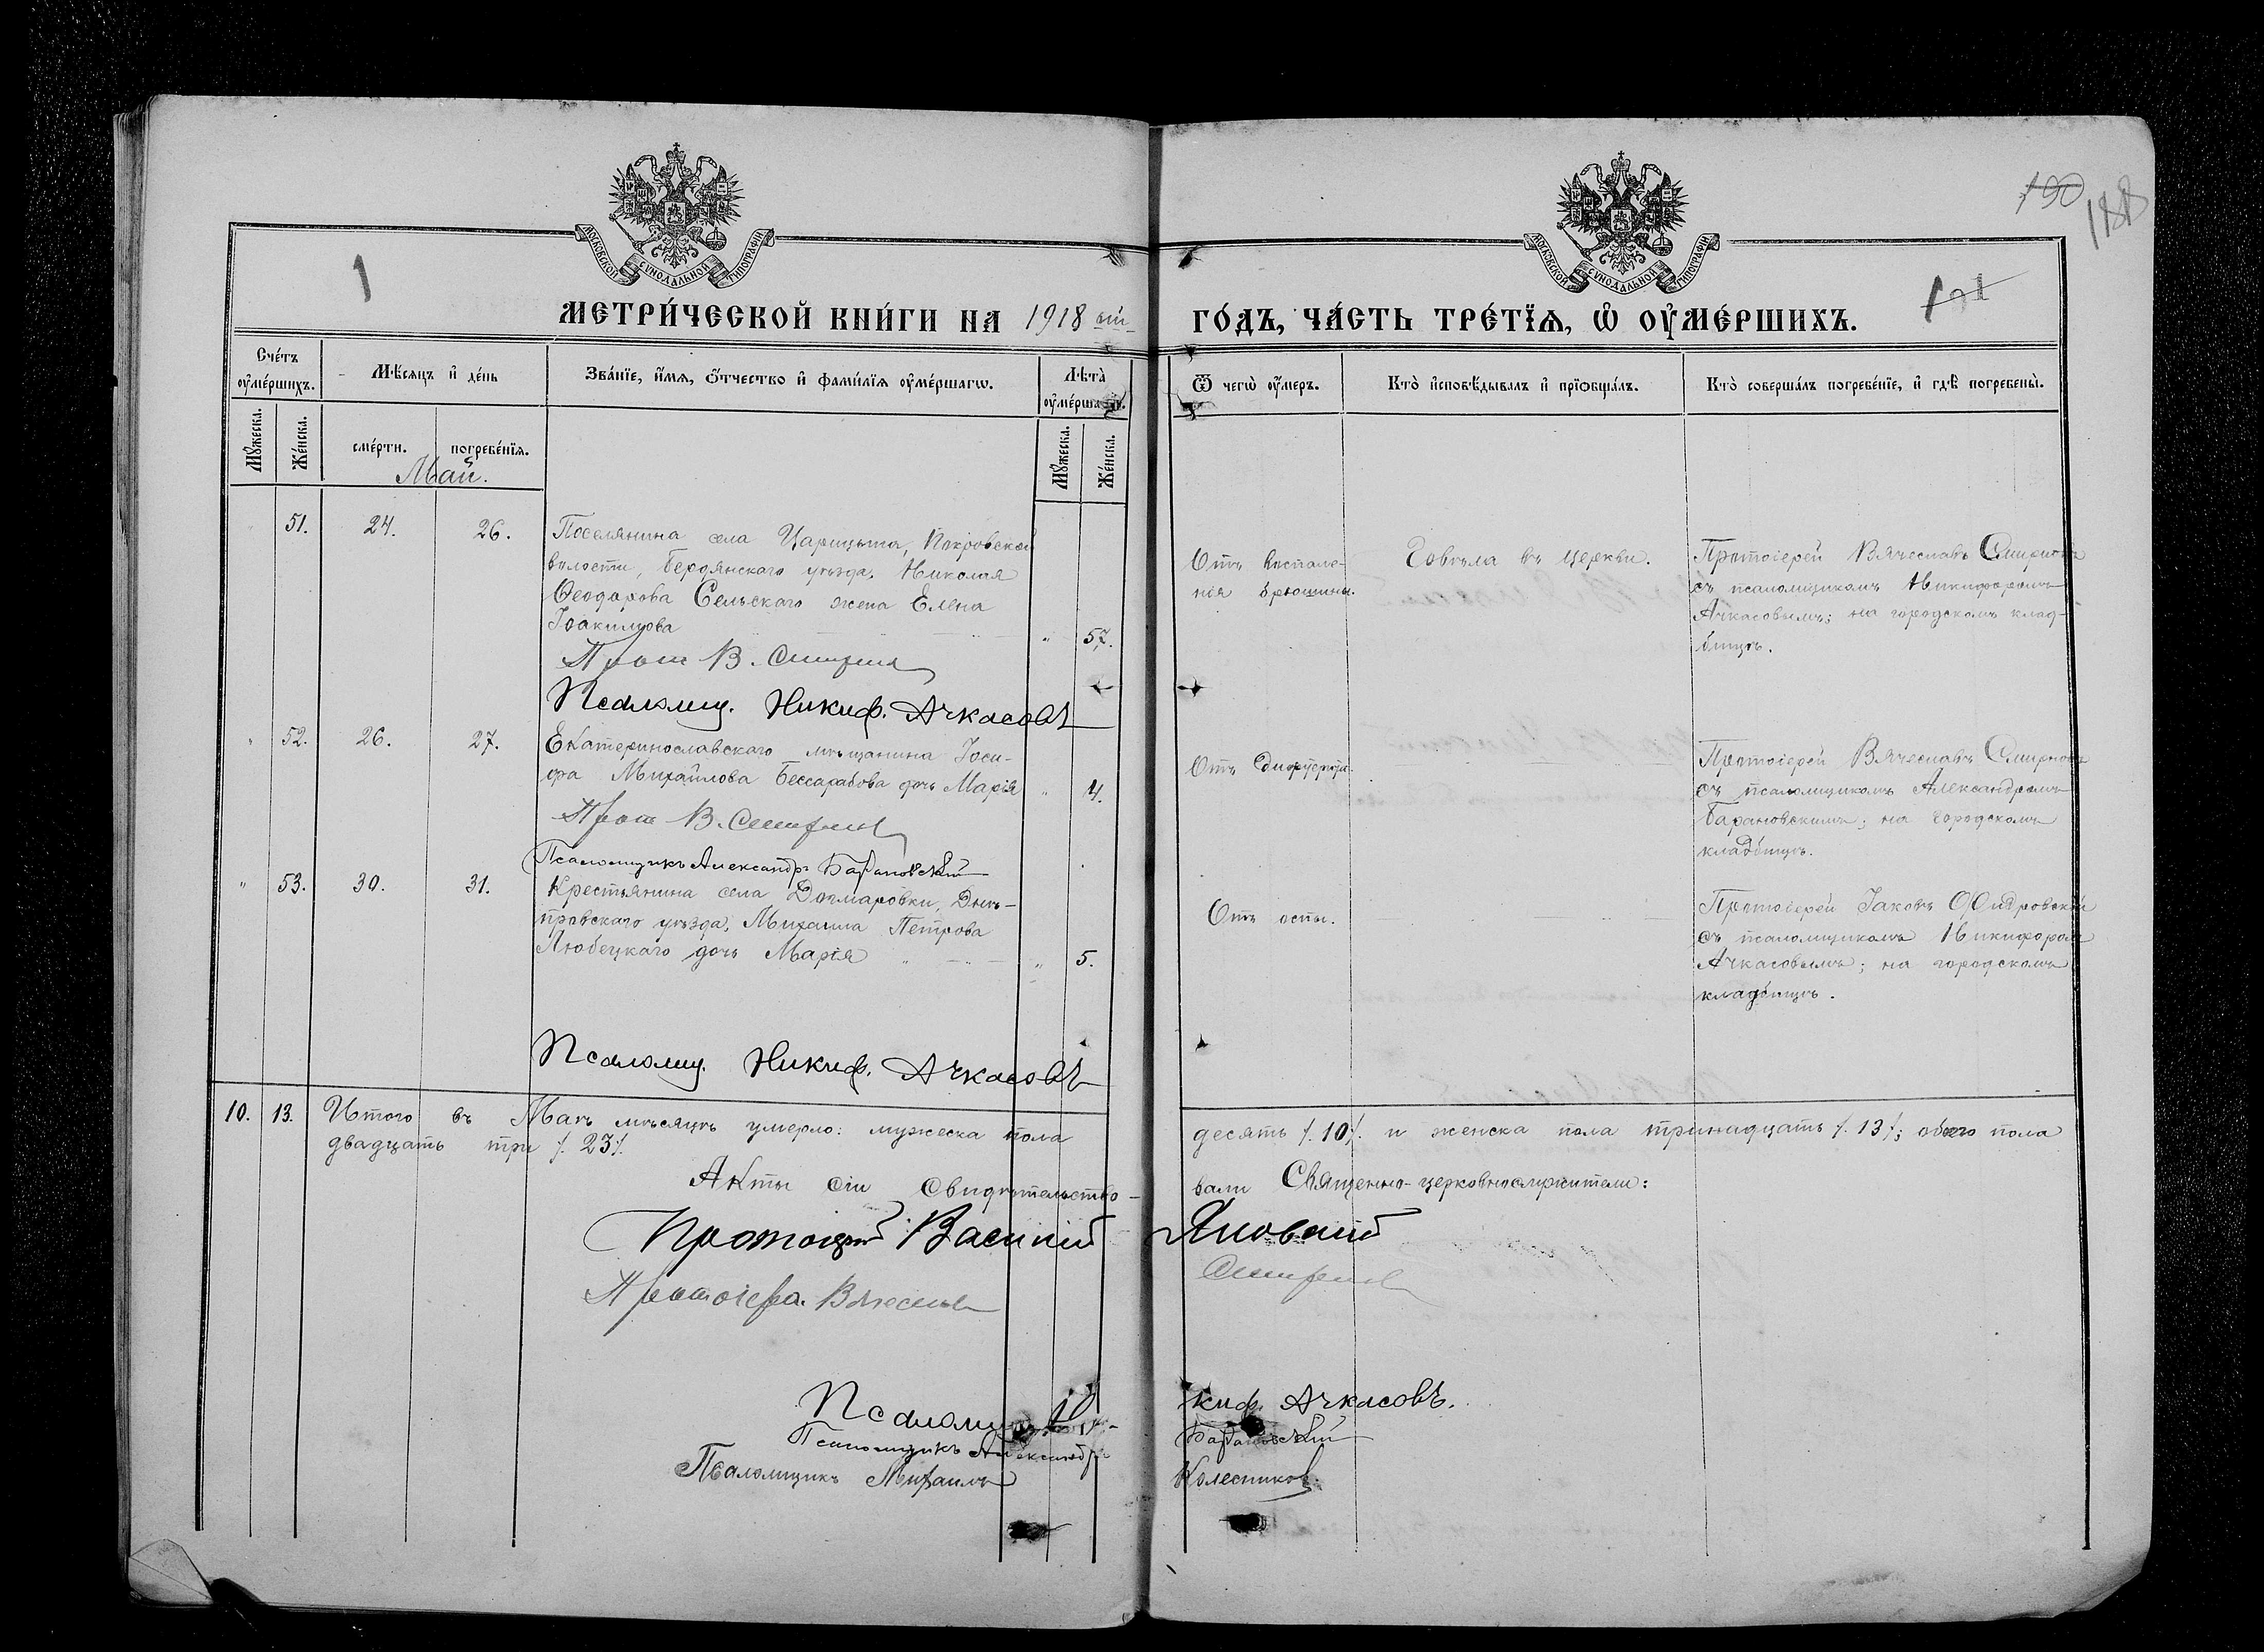 190
188
МОСКОВСКОЙ СѴНОДАЛЬНОЙ ТИПОГРАФІИ
МОСКОВСКОЙ СѴНОДАЛЬНОЙ ТИПОГРАФІИ
1
МЕТРИ́ЧЕСКОЙ КНИ́ГИ НА 1918 ый
ГО́ДЪ, ЧА́СТЬ ТРЕ́ТЇѦ, Ѡ҆ ОУ҆МЕ́РШИХЪ.
Сче́тъ оу҆ме́ршихъ.
Мꙋ́жеска. Же́нска.
Мѣ́сяцъ и҆ де́нь
сме́рти. погребе́нїѧ.
Зва́нїе, и҆́мѧ, ѻ҆́тчество и҆ фами́лїѧ оу҆ме́ршагѡ.
Лѣта̀ оу҆ме́рша
Мꙋ́жеска. Же́нска.
Ѿ чегѡ̀ оу҆́меръ.
Кто̀ и҆сповѣ́дывалъ и҆ прїѡбща́лъ.
Кто̀ соверша́лъ погребе́нїе, и҆ гдѣ̀ погребены̀.
Май.
51. 24. 26.
Поселянина села Царицына, Покровской
волости, Бердянскаго уѣзда, Николая
Ѳеодорова Сельскаго жена Елена
Іоакимова " 57.
Прот В. Смирнов
Псаломщ. Никиф. Ачкасовъ
Отъ воспале-
нія брюшины.
Говѣла въ церкви.
Протоіерей Вячеславъ Смирновъ
съ псаломщикомъ Никифоромъ
Ачкасовымъ; на городскомъ клад-
бищѣ.
" 52. 26. 27.
Екатеринославскаго мѣщанина Іоси-
фа Михайлова Бессарабова дочь Марія " 4.
Прот В. Смирнов
Псаломщикъ Александръ Барановскій
Отъ дифтерита.
Протоіерей Вячеславъ Смирновъ
съ псаломщикомъ Александромъ
Барановскимъ; на городскомъ
кладбищѣ.
" 53. 30. 31.
Крестьянина села Догмаровки, Днѣ-
провскаго уѣзда, Михаила Петрова
Любецкаго дочь Марія " 5.
Псаломщ. Никиф. Ачкасовъ
Отъ оспы.
Протоіерей Іаковъ
съ псаломщикомъ Никифоромъ
Ачкасовымъ; на городскомъ
кладбищѣ.
10. 13. Итого въ Маѣ мѣсяцѣ умерло: мужеска пола десять /.10/. и женска пола тринадцать /.13/.; обоего пола
двадцать три /.23/.
Акты сіи свидѣтельство-вали Священно-церковнослужители:
Протоіерей Василій Яновскій
Протоіерей Вячеслав Смирнов
Псаломщ. Никиф. Ачкасовъ.
Псаломщикъ Александръ Барановскій
Псаломщикъ Михаилъ Колесников.